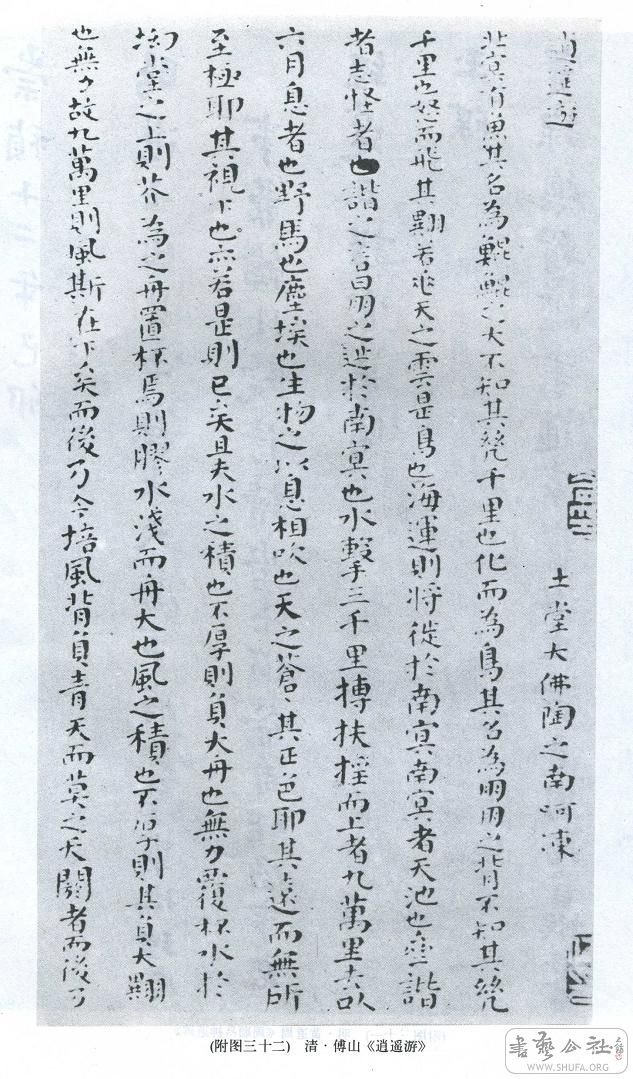 逍遥遊
土堂大佛陶之南呵凍
北冥有魚其名為鯤鯤之大不知其幾千里也化而為鳥其名為朋朋之背不知其幾
千里也怒而飛其翼若垂天之雲是鳥也海運則將徙於南冥南冥者天池也齊諧
者志怪者也諧之言曰朋之徙於南冥也水擊三千里摶扶搖而上者九萬里去以
六月息者也野馬也塵埃也生物之以息相吹也天之蒼〻其正色耶其遠而無所
至極耶其視下也亦若是則已矣且夫水之積也不厚則負大舟也無力覆杯水於
坳堂之上則芥為之舟置杯焉則膠水淺而舟大也風之積也不厚則其負大翼
也無力故九萬里則風斯在下矣而後乃今培風背負青天而莫之夭閼者而後乃
(附图三十二) 清·傅山《逍遥游》
書藝公社
WWW.SHUFA.ORG